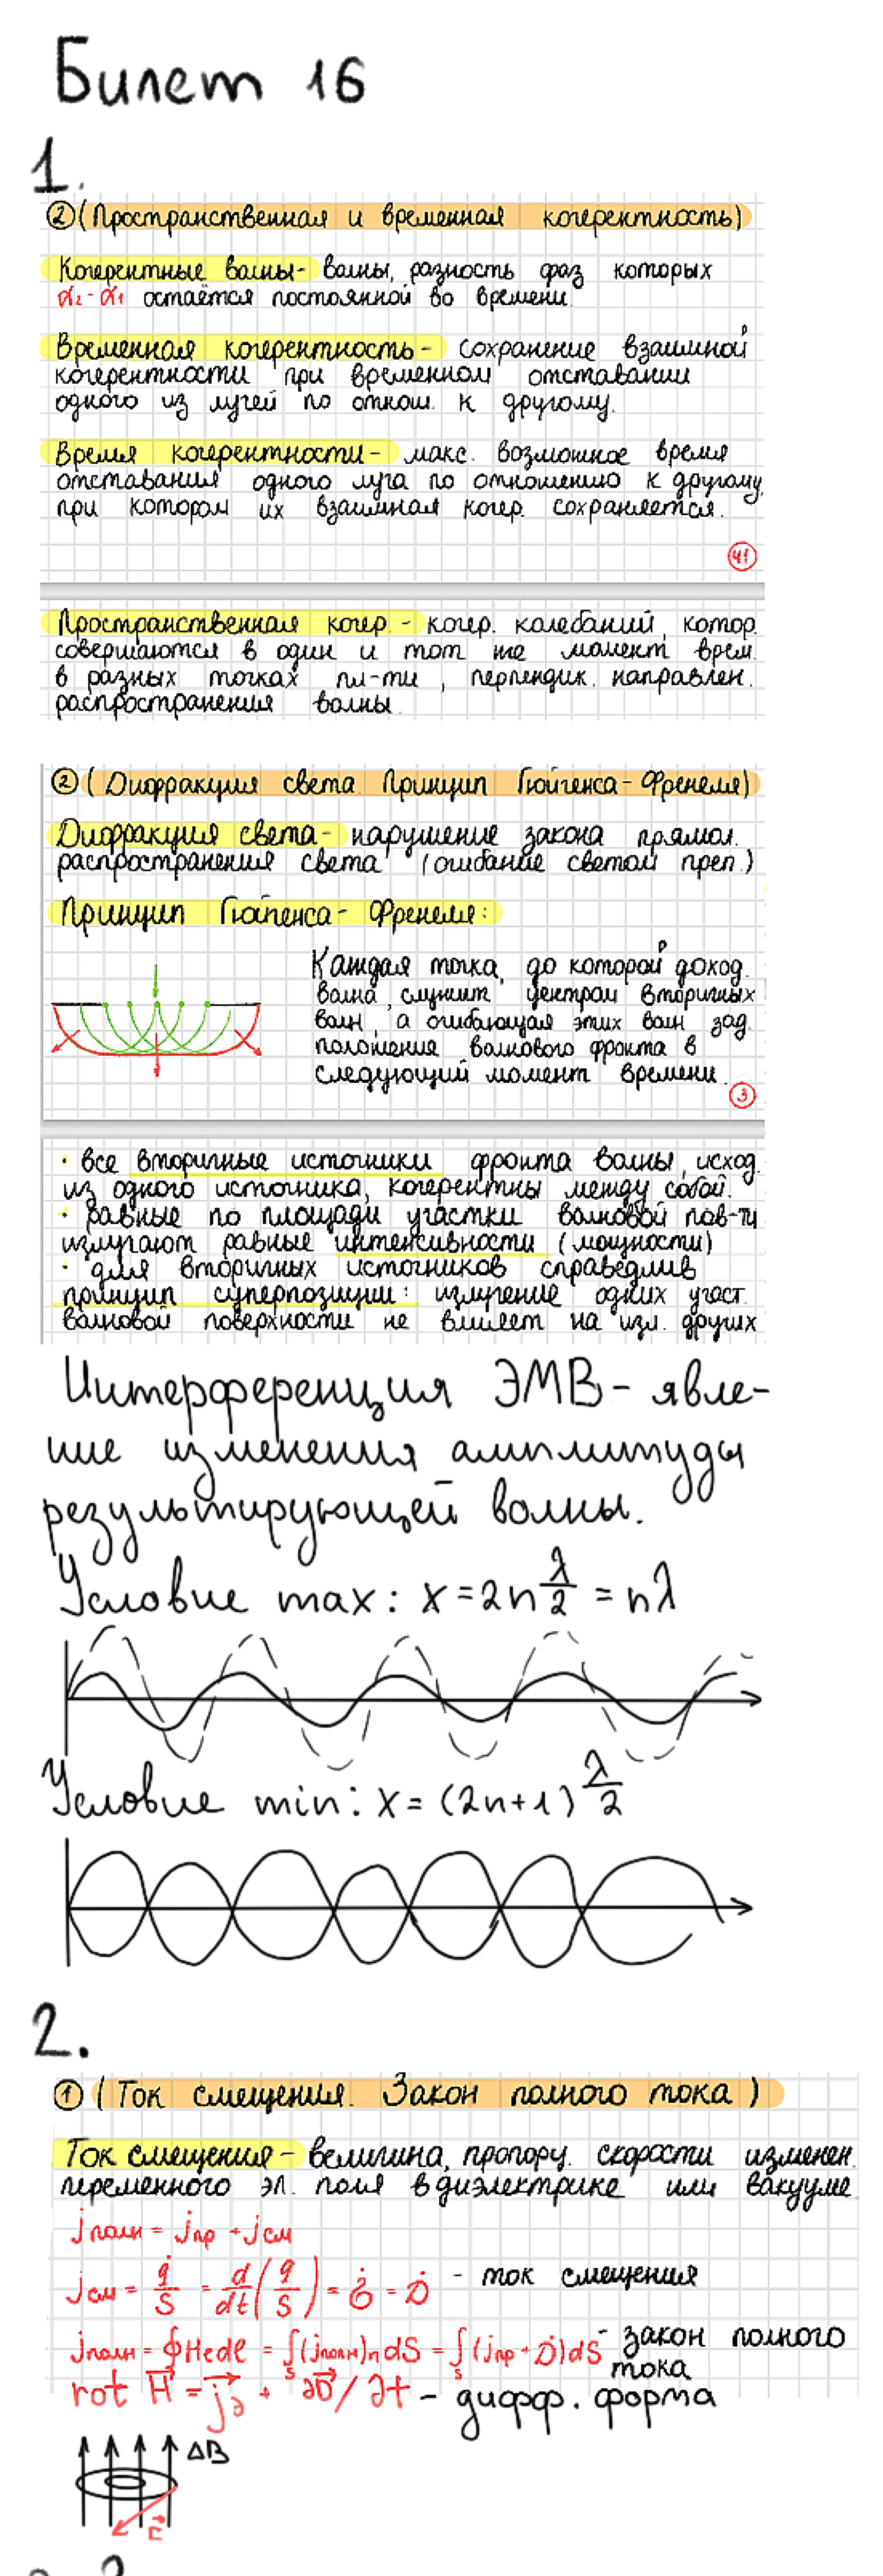 Билет 16
1.
② (Пространственная и временная когерентность)
Когерентные волны- волны, разность фаз которых
α₂-α₁ остаётся постоянной во времени.
Временная когерентность- сохранение взаимной
когерентности при временном отставании
одного из лучей по отнош. к другому.
Время когерентности- макс. возможное время
отставания одного луча по отношению к другому,
при котором их взаимная когер. сохраняется.
41
Пространственная когер. - когер. колебаний, котор.
совершаются в один и тот же момент врем.
в разных точках пл-ти, перпендик. направлен.
распространения волны.
② (Дифракция света. Принцип Гюйгенса-Френеля)
Дифракция света- нарушение закона прямол.
распространения света (огибание светом преп.)
Принцип Гюйгенса- Френеля:
Каждая точка, до которой доход.
волна, служит центром вторичных
волн, а огибающая этих волн зад.
положения волнового фронта в
следующий момент времени.
3
· все вторичные источники фронта волны, исход.
из одного источника, когерентны между собой.
· равные по площади участки волновой пов-ти
излучают равные интенсивности (мощности)
· для вторичных источников справедлив
принцип суперпозиции: излучение одних участ.
волновой поверхности не влияет на изл. других
Интерференция ЭМВ- явле-
ние изменения амплитуды
результирующей волны.
Условие max: x = 2n λ/2 = nλ
Условие min: x = (2n+1) λ/2
2.
① (Ток смещения. Закон полного тока)
Ток смещения- величина, пропор. скорости изменен.
переменного эл. поля в диэлектрике или вакууме.
jполн = jпр + jсм
jсм = q̇/S = d/dt (q/S) = σ̇ = Ḋ - ток смещения
jполн = ∮Hedl = ∫s (jполн)n dS = ∫s (jпр + Ḋ)dS - закон полного
тока
rot H⃗ = j⃗э + ∂D⃗/∂t - дифф. форма
ΔB
E⃗